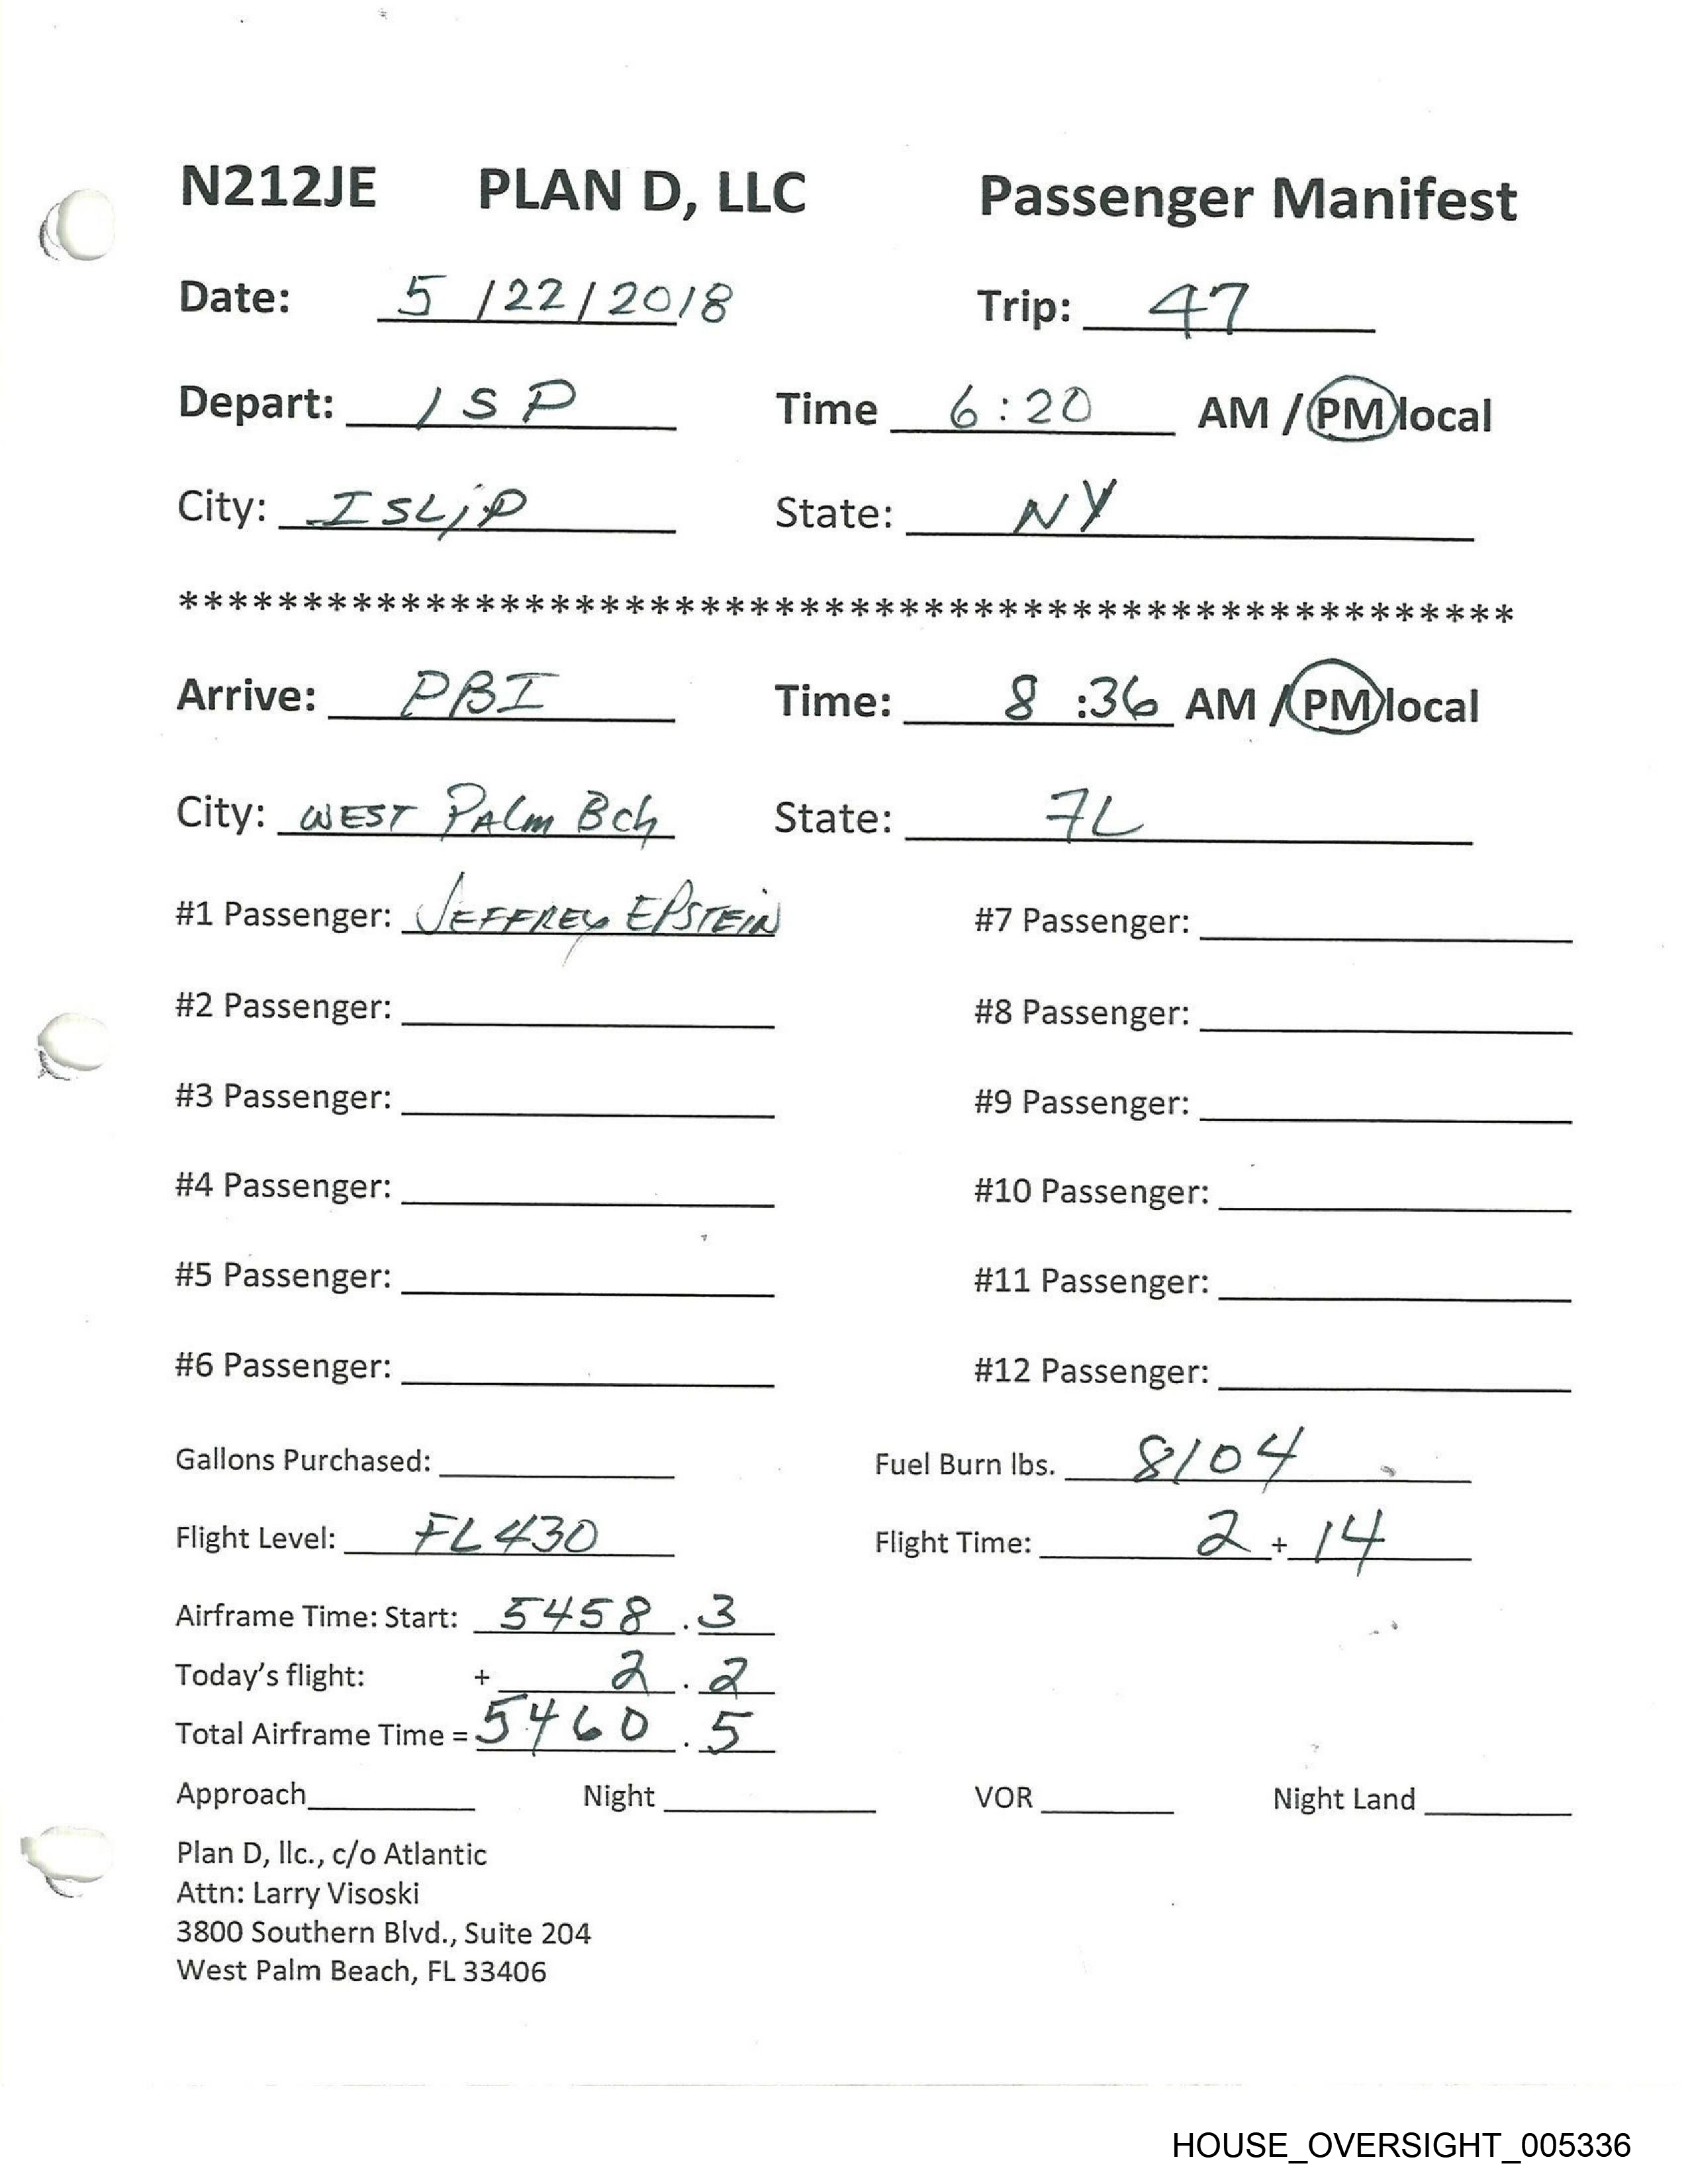 N212JE PLAN D, LLC Passenger Manifest
Date: 5 /22/2018 Trip: 47
Depart: ISP Time 6:20 AM / PM local
City: ISLiP State: NY
******************************************************
Arrive: PBI Time: 8 :36 AM / PM local
City: WEST PALm Bch State: FL
#1 Passenger: JEFFREy EPSTEiN #7 Passenger:
#2 Passenger: #8 Passenger:
#3 Passenger: #9 Passenger:
#4 Passenger: #10 Passenger:
#5 Passenger: #11 Passenger:
#6 Passenger: #12 Passenger:
Gallons Purchased: Fuel Burn lbs. 8104
Flight Level: FL430 Flight Time: 2 + 14
Airframe Time: Start: 5458 . 3
Today's flight: + 2 . 2
Total Airframe Time = 5460 . 5
Approach Night VOR Night Land
Plan D, llc., c/o Atlantic
Attn: Larry Visoski
3800 Southern Blvd., Suite 204
West Palm Beach, FL 33406
HOUSE_OVERSIGHT_005336